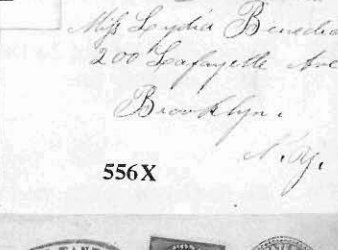 Miss Lydia Benedic
200 Lafayette Ave
Brooklyn.
N. Y.
556X